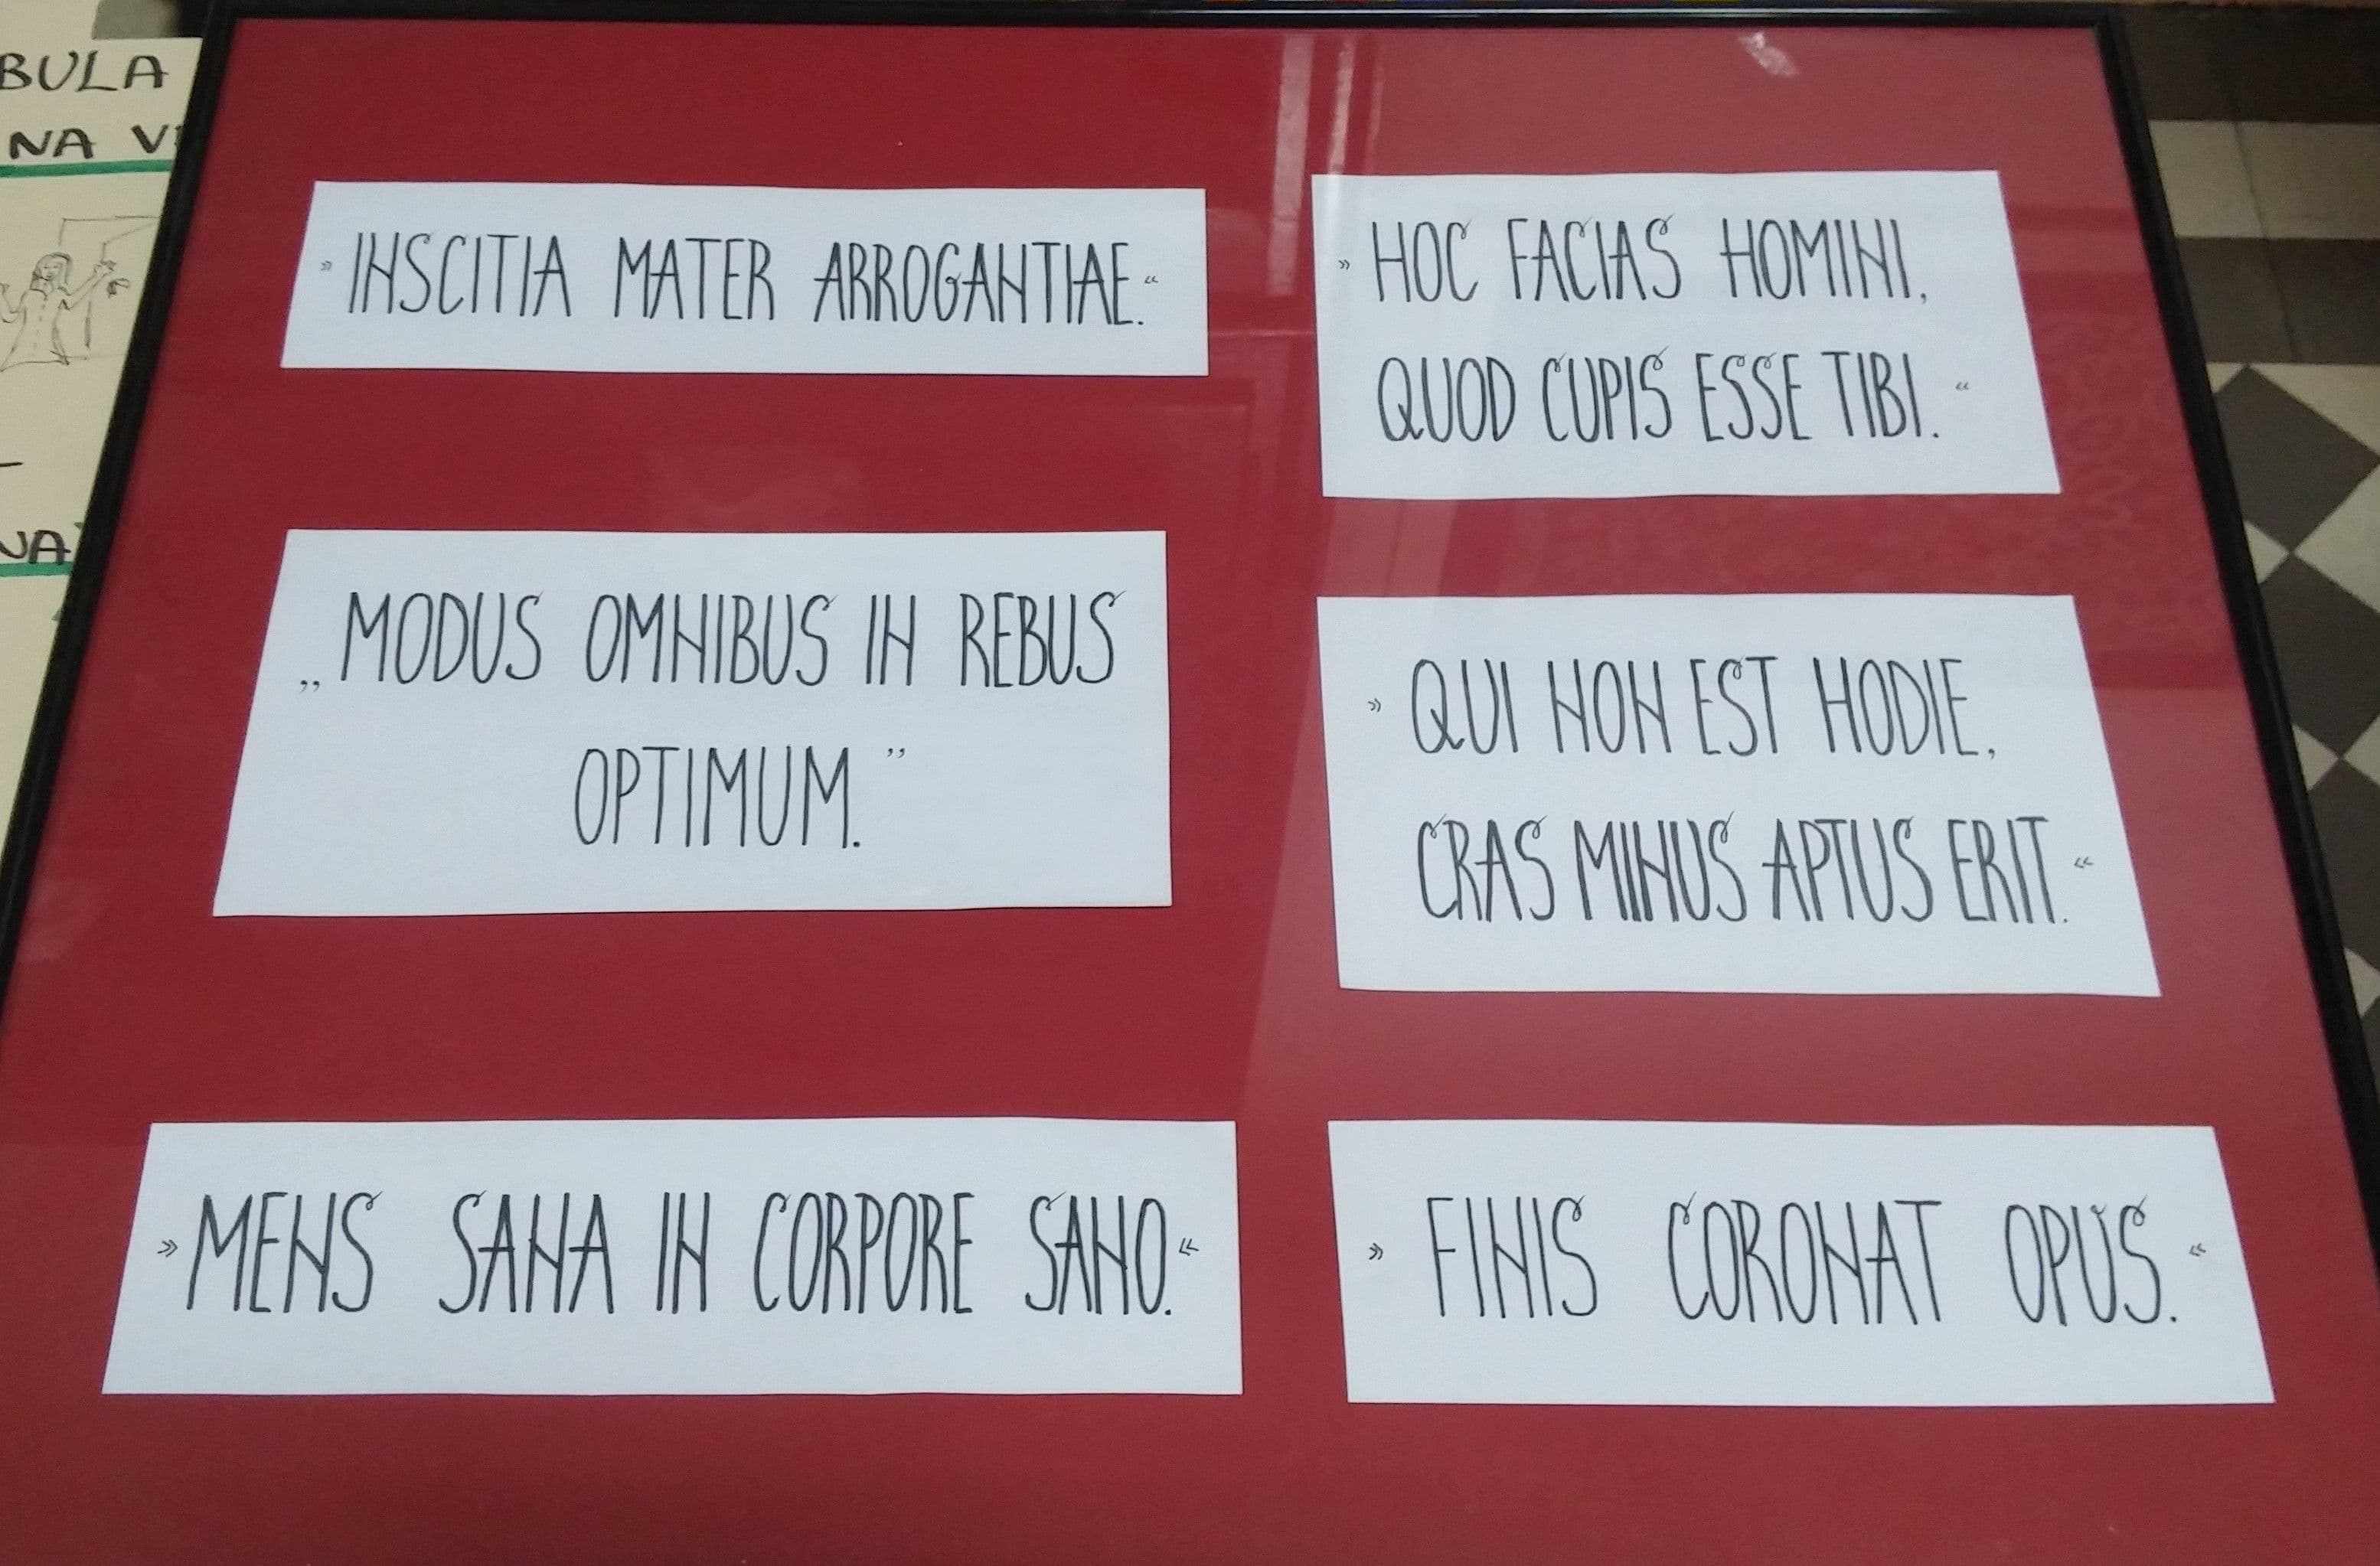 BULA
NA V
NA
»INSCITIA MATER ARROGANTIAE.«
»HOC FACIAS HOMINI,
QUOD CUPIS ESSE TIBI.«
„MODUS OMNIBUS IN REBUS
OPTIMUM.”
»QUI NON EST HODIE,
CRAS MINUS APTUS ERIT.«
»MENS SANA IN CORPORE SANO.«
»FINIS CORONAT OPUS.«